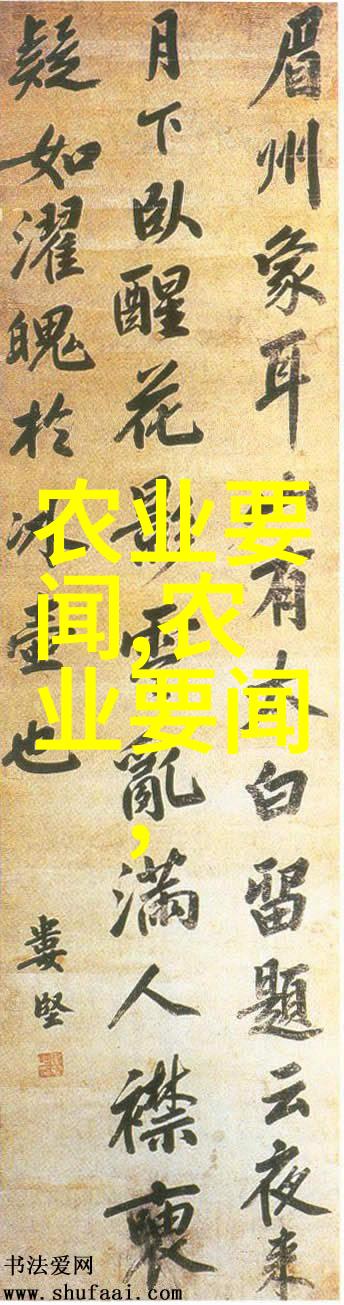 眉州象耳有太白留題云夜來
月下臥醒花影亂滿人襟
疑如濯魄於冰壺也
婁堅
农业要
闻,农
业要闻
,
书法爱网
www.shufaai.com